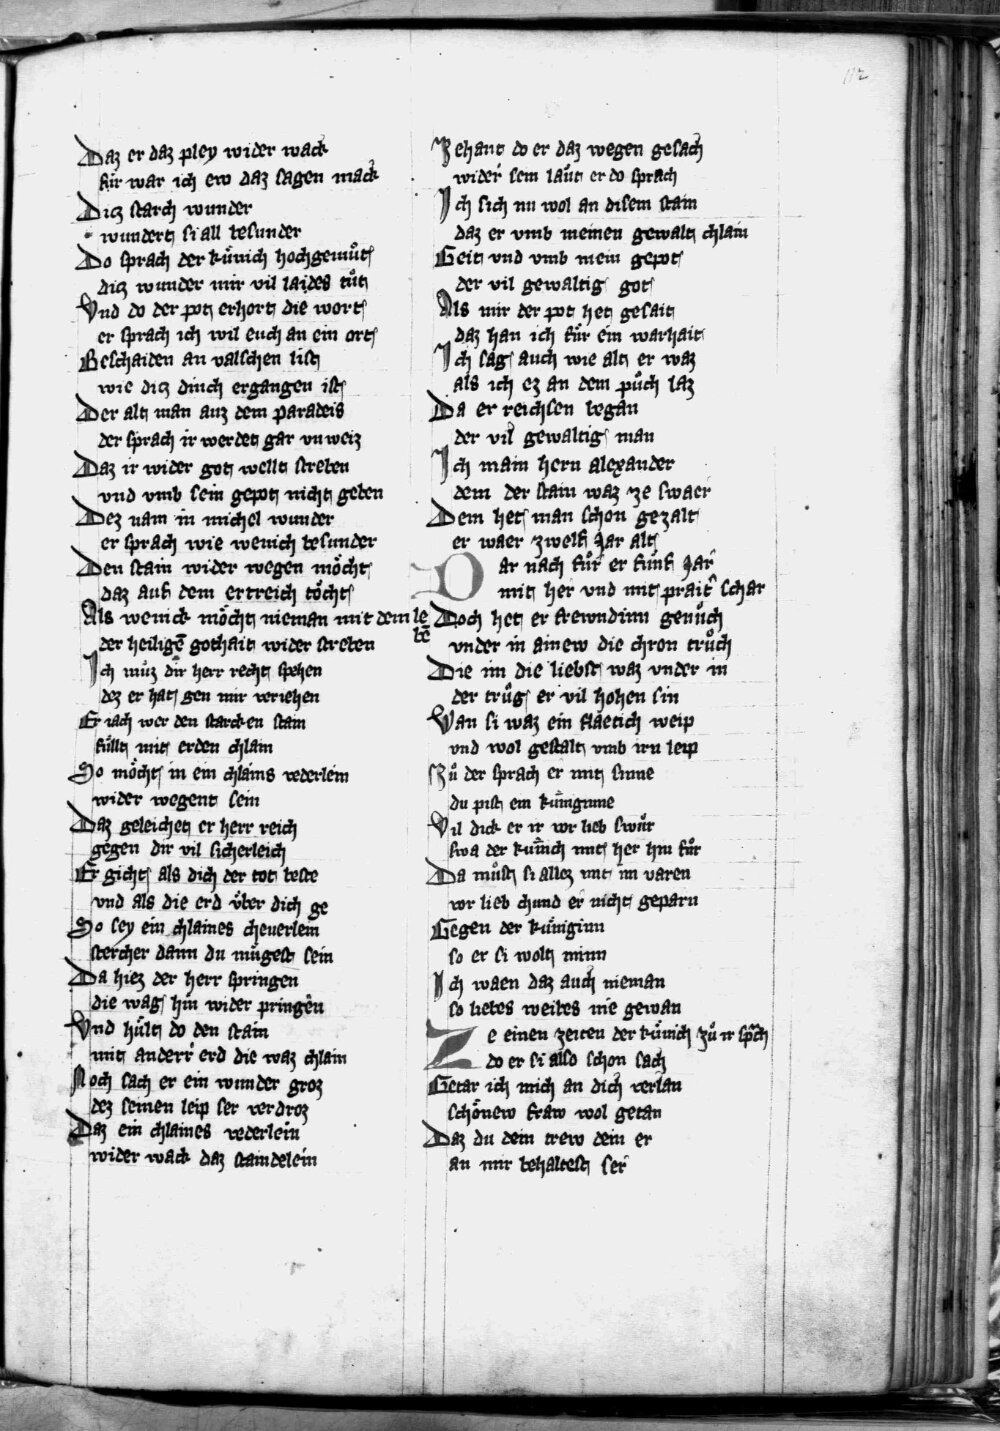 112
Daz er daz pley wider wack
für war ich ew daz sagen mack
Dicz starch wunder
wundert si all besunder
Do sprach der künich hochgemůt
dicz wunder mir vil laides tůt
Vnd do der pot erhort die wort
er sprach ich wil euch an ein ort
Beschaiden an valschen list
wie dicz dinch ergangen ist
Der alt man auz dem paradeis
der sprach ir werdet gar vnweiz
Daz ir wider got wellt streben
vnd vmb sein gepot nicht geben
Dez nam in michel wunder
er sprach wie wenich besunder
Den stain wider wegen möcht
daz auf dem ertreich töcht
Als wenick möcht nieman mit dem lebē
der heiligē gothait wider streben
Ich můz dir herr recht spehen
dez er hat gen mir veriehen
Er iach wer den starcken stain
füllt mit erden chlain
So möcht in ein chlains vederlein
wider wegent sein
Daz geleichet er herr reich
gegen dir vil sicherleich
Er gicht als dich der tot beste
vnd als die erd über dich ge
So sey ein chlaines cheuerlein
stercher dann du mügest sein
Da hiez der herr springen
die wag hin wider pringen
Vnd hült do den stain
mit anderr erd die waz chlain
Noch sach er ein wunder groz
dez seinen leip ser verdroz
Daz ein chlaines vederlein
wider wack daz staindelein
Zehant do er daz wegen gesach
wider sein läut er do sprach
Ich sich nu wol an disem stain
daz er vmb meinen gewalt chlain
Geit vnd vmb mein gepot
der vil gewaltig got
Als mir der pot het gesait
daz han ich für ein warhait
Ich sag auch wie alt er waz
als ich ez an dem půch laz
Da er reichsen began
der vil gewaltig man
Ich main hern alexander
dem der stain waz ze swaer
Dem het man schon gezalt
er waer zwelf Jar alt
Dar nach für er fünf Jar
mit her vnd mit prait' schar
Doch het er frewndinn genůch
vnder in ainew die chron trůch
Die im die liebst waz vnder in
der trůg er vil hohen sin
Wan si waz ein flaetich weip
vnd wol gestalt vmb irn leip
Zů der sprach er mit sinne
du pist ein küniginne
Vil dick er ir vor lieb swůr
swa der künich mit her hin fůr
Da můst si allez mit im varen
vor lieb chund er nicht geparn
Gegen der küniginn
so er si wolt minn
Ich waen daz auch nieman
so liebes weibes nie gewan
Ze einen zeiten der künich zů ir sp̄ch
do er si also schon sach
Getar ich mich an dich verlan
schönew fraw wol getan
Daz du dein trew dein er
an mir behaltest ser